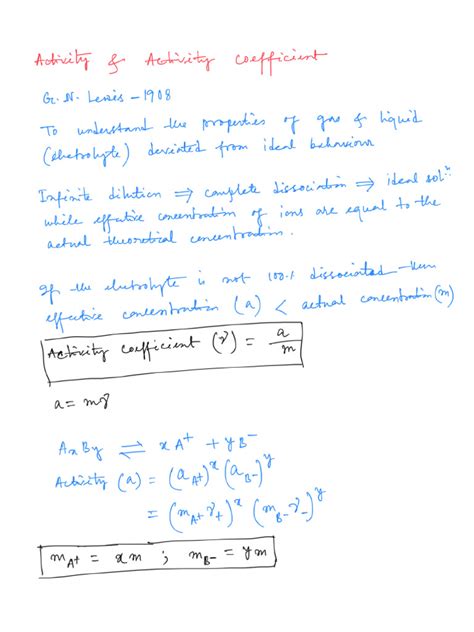 Activity & Activity coefficient
G. N. Lewis – 1908
To understand the properties of gas & liquid
(electrolyte) derviated from ideal behaviour
Infinite dilution ⇒ complete dissociation ⇒ ideal solⁿ
while effective concentration of ions are equal to the
actual theoretical concentration.
If the electrolyte is not 100% dissociated then
effective concentration (a) < actual concentration (m)
Activity coefficient (γ) = a/m
a = mγ
AxBy ⇌ xA⁺ + yB⁻
Activity (a) = (a_A⁺)^x (a_B⁻)^y
= (m_A⁺ γ₊)^x (m_B⁻ γ₋)^y
m_A⁺ = xm ; m_B⁻ = ym